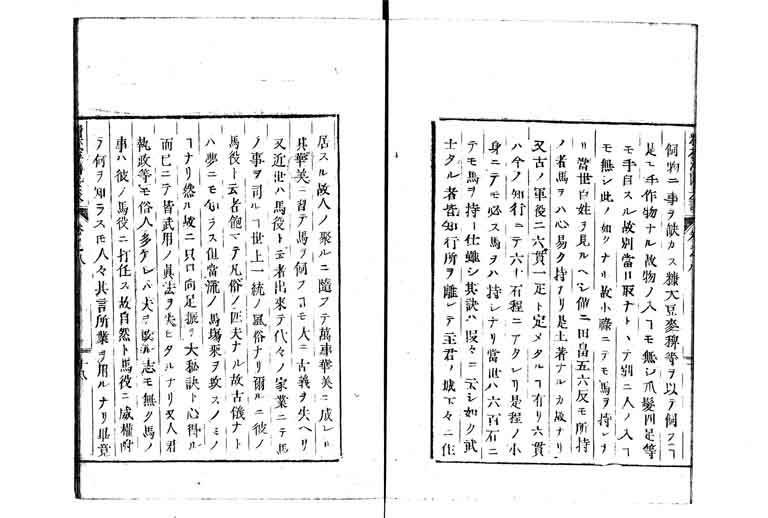 飼物ニ事ヲ缺カス糠大豆麥稗等ヲ以テ飼フヿ
是亦手作物ナル故物ノ入ヿモ無シ爪髮四足等
モ手自スル故別當口取ナトヽテ別ニ人ノ入ヿ
モ無シ此ノ如クナリ故小祿ニテモ馬ヲ持シ
リ當世百姓ヲ見ルヘシ僅ニ田畠五六反モ所持
ノ者馬ヲハ心易ク持ナリ是土著ナルカ故ナリ
又古ノ軍役ニ六貫一疋ト定メタルヿ有リ六貫
ハ今ノ知行ニテ六十石程ニアタレリ是程ノ小
身ニテモ必ス馬ヲハ持シナリ當世ハ六百石ニ
テモ馬ヲ持仕雖シ其訣ハ段々ニ云シ如ク武
士タル者皆知行所ヲ離レテ主君ノ城下々々ニ住
居スル故人ノ聚ルニ隨フテ萬事華美ニ成レリ
其華美ニ習テ馬ヲ飼フヿモ大ニ古義ヲ失ヘリ
又近世ハ馬役ト云者出來テ代々ノ家業ニテ馬
ノ事ヲ司ルヿ世上一統ノ風俗ナリ爾ルニ彼ノ
馬役ト云者飽マテ凡俗ノ匹夫ナル故古儀ナト
ハ夢ニモ知ラス但當流ノ馬塲乘ヲ教スノミノ
ヿナリ然ル故ニ只口向足振ヲ大秘訣ト心得ル
而已ニテ皆武用ノ眞法ヲ失ヒタルナリ又人君
執政等モ俗人多ケレハ夫ヲ改ル志モ無ク馬ノ
事ハ彼ノ馬役ニ打任ス故自然ト馬役ニ威權附
テ何ヲ知ラスモ人々其言所業ヲ用ルナリ畢竟